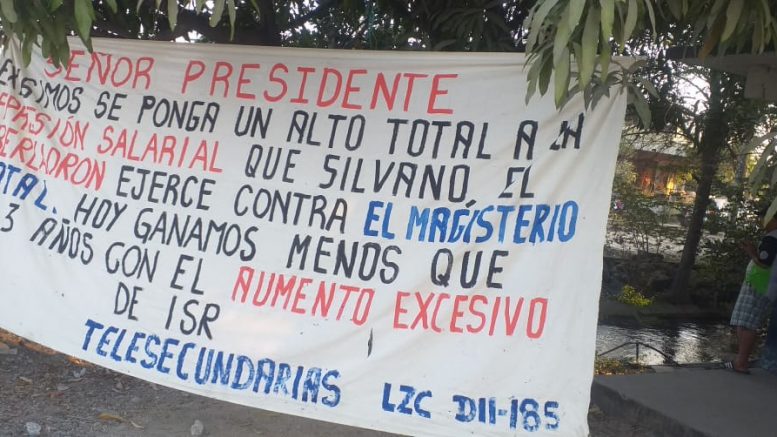 SEÑOR PRESIDENTE
EXIGIMOS SE PONGA UN ALTO TOTAL A LA
REPRESIÓN SALARIAL QUE SILVANO, EL
EJERCE CONTRA EL MAGISTERIO
HOY GANAMOS MENOS QUE
3 AÑOS CON EL AUMENTO EXCESIVO
DE ISR
TELESECUNDARIAS LZC D11-185